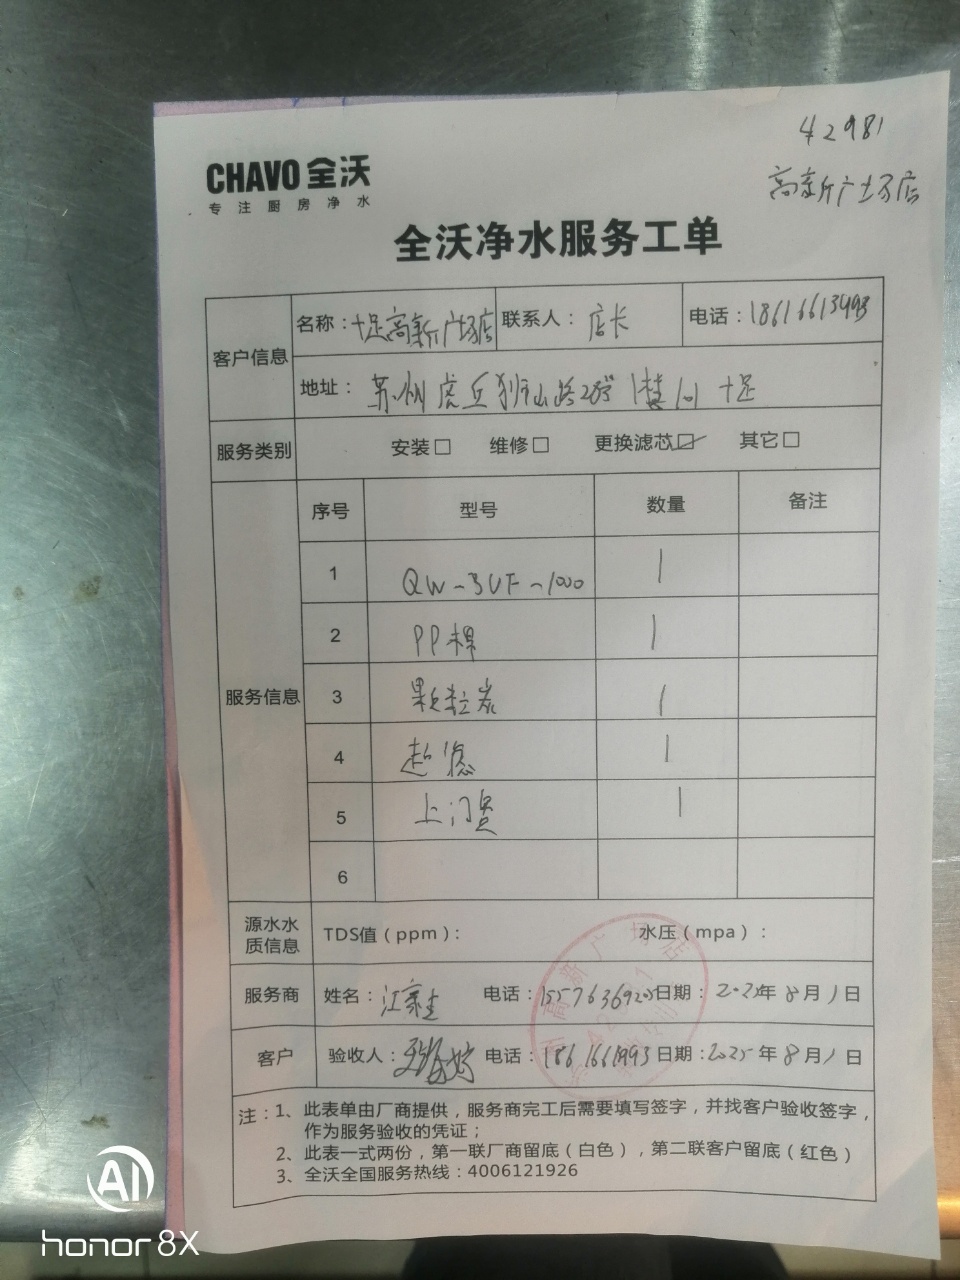 42981
高新广场店
CHAVO 全沃
专注厨房净水
全沃净水服务工单
客户信息 名称：十足高新广场店 联系人：店长 电话：18616613493
地址：苏州虎丘狮山路 十足
服务类别 安装□ 维修□ 更换滤芯☑ 其它□
服务信息 序号 型号 数量 备注
1 QW-3UF-1000 1
2 PP棉 1
3 颗粒炭 1
4 超滤 1
5 上门费 1
6
源水水质信息 TDS值（ppm）： 水压（mpa）：
服务商 姓名：江 电话：15576369205 日期：2025年8月1日
客户 验收人： 电话： 日期：2025年8月1日
注：1、此表单由厂商提供，服务商完工后需要填写签字，并找客户验收签字，
作为服务验收的凭证；
2、此表一式两份，第一联厂商留底（白色），第二联客户留底（红色）
3、全沃全国服务热线：4006121926
AI
honor 8X